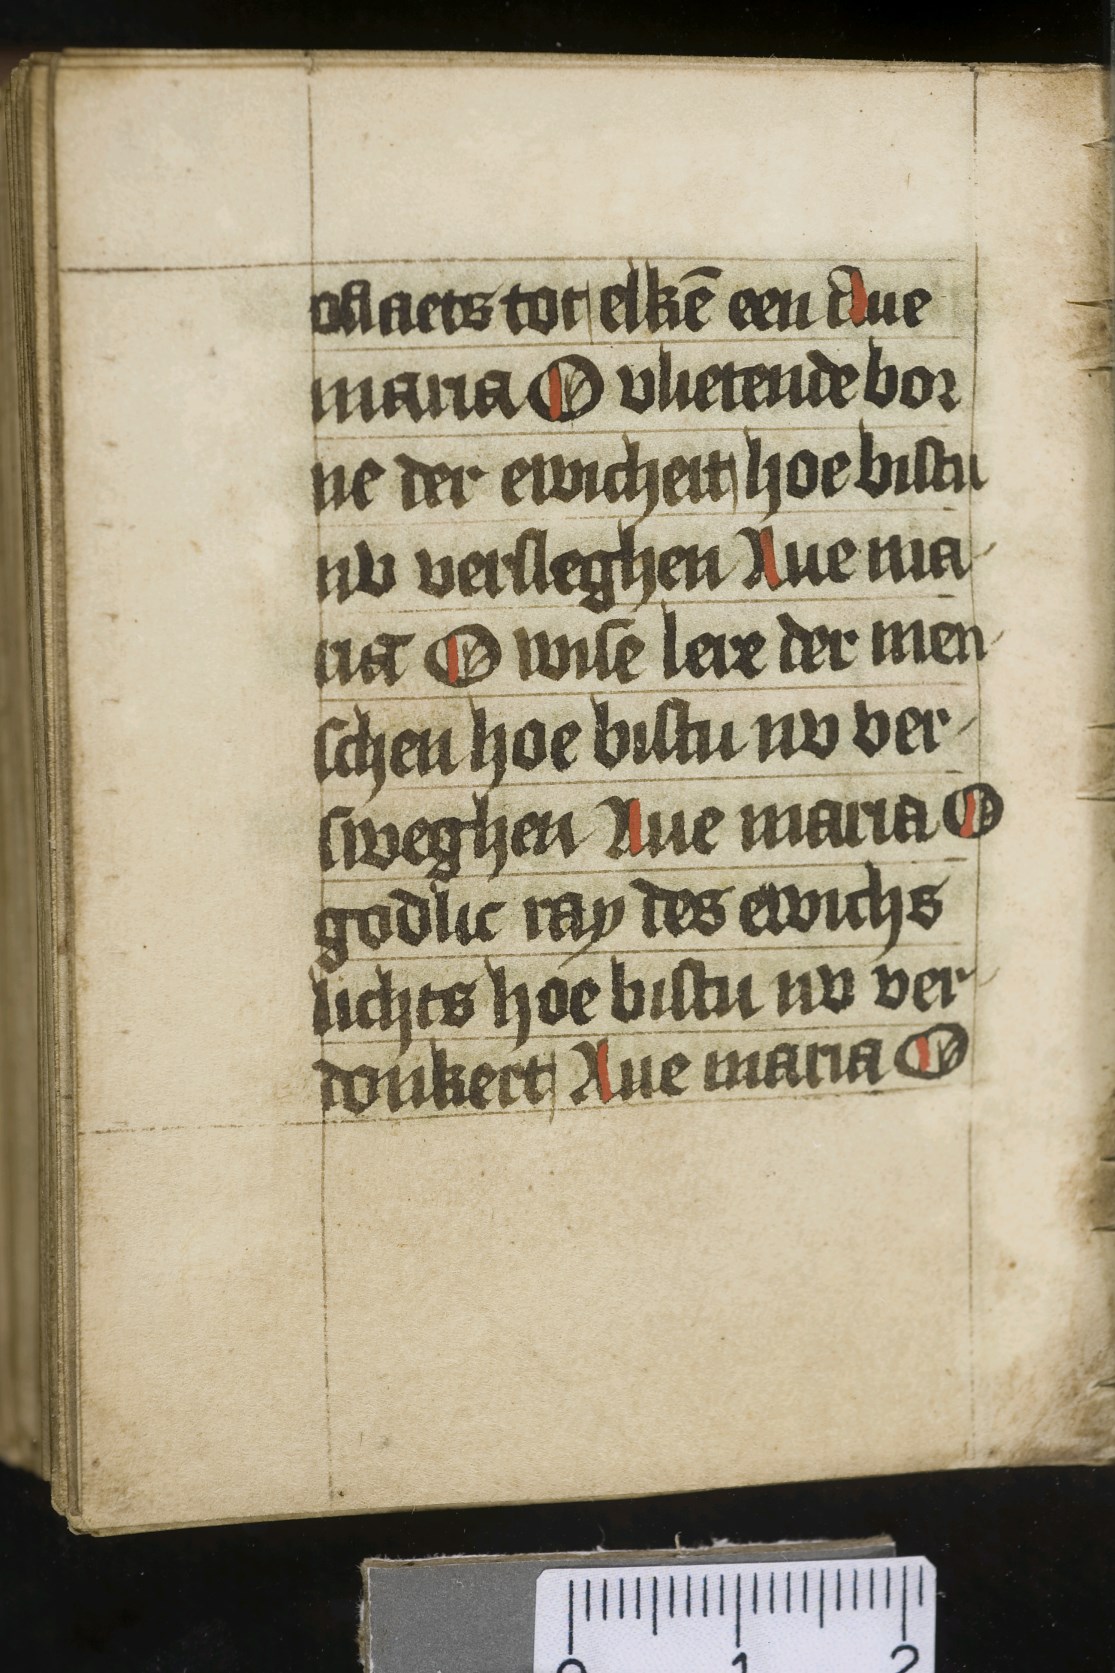 oflaets tot elkē een Aue
maria O vlietende bor
ne der ewicheit hoe bistu
nv versleghen Aue ma
ria O wise lere der men
schen hoe bistu nv ver
sweghen Aue maria O
godlic ray des ewichs
lichts hoe bistu nv ver
donkert Aue maria O
0 1 2